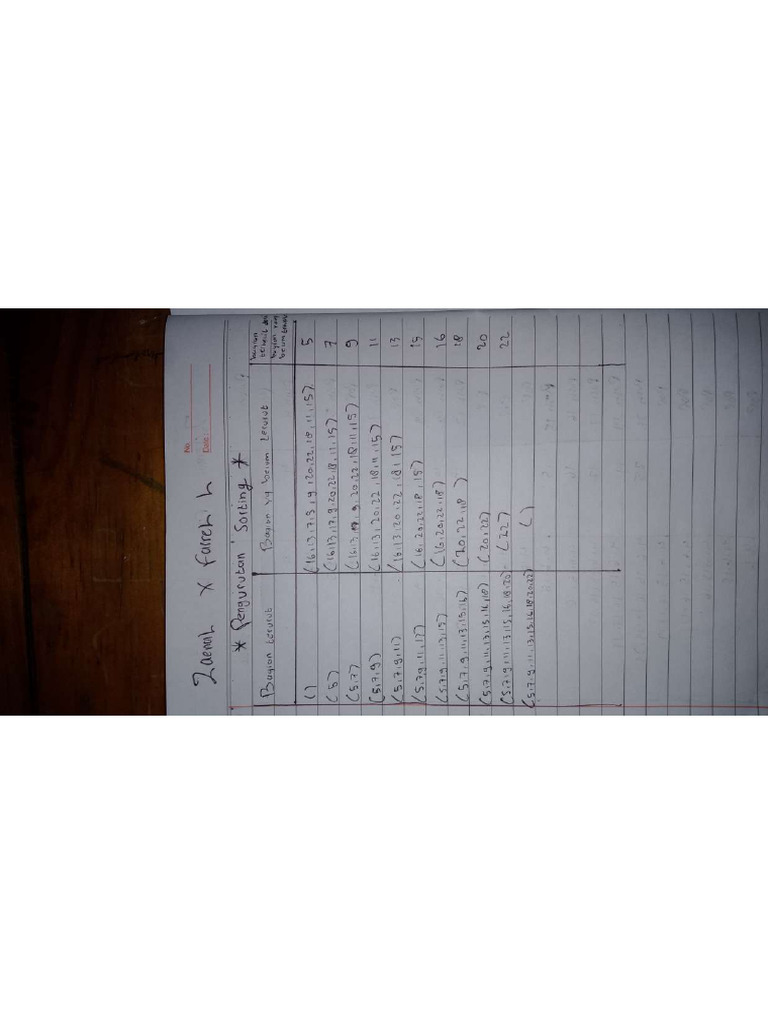 No.
Date:
Zaenal x Farrel h
* Pengurutan Sorting *
Bagian terurut Bagian yg belum terurut bagian terkecil dari bagian yang belum terurut
( ) (16,13,7,5,9,20,22,18,11,15) 5
(5) (16,13,7,9,20,22,18,11,15) 7
(5,7) (16,13,9,20,22,18,11,15) 9
(5,7,9) (16,13,20,22,18,11,15) 11
(5,7,9,11) (16,13,20,22,18,15) 13
(5,7,9,11,13) (16,20,22,18,15) 15
(5,7,9,11,13,15) (16,20,22,18) 16
(5,7,9,11,13,15,16) (20,22,18) 18
(5,7,9,11,13,15,16,18) (20,22) 20
(5,7,9,11,13,15,16,18,20) (22) 22
(5,7,9,11,13,15,16,18,20,22) ( )